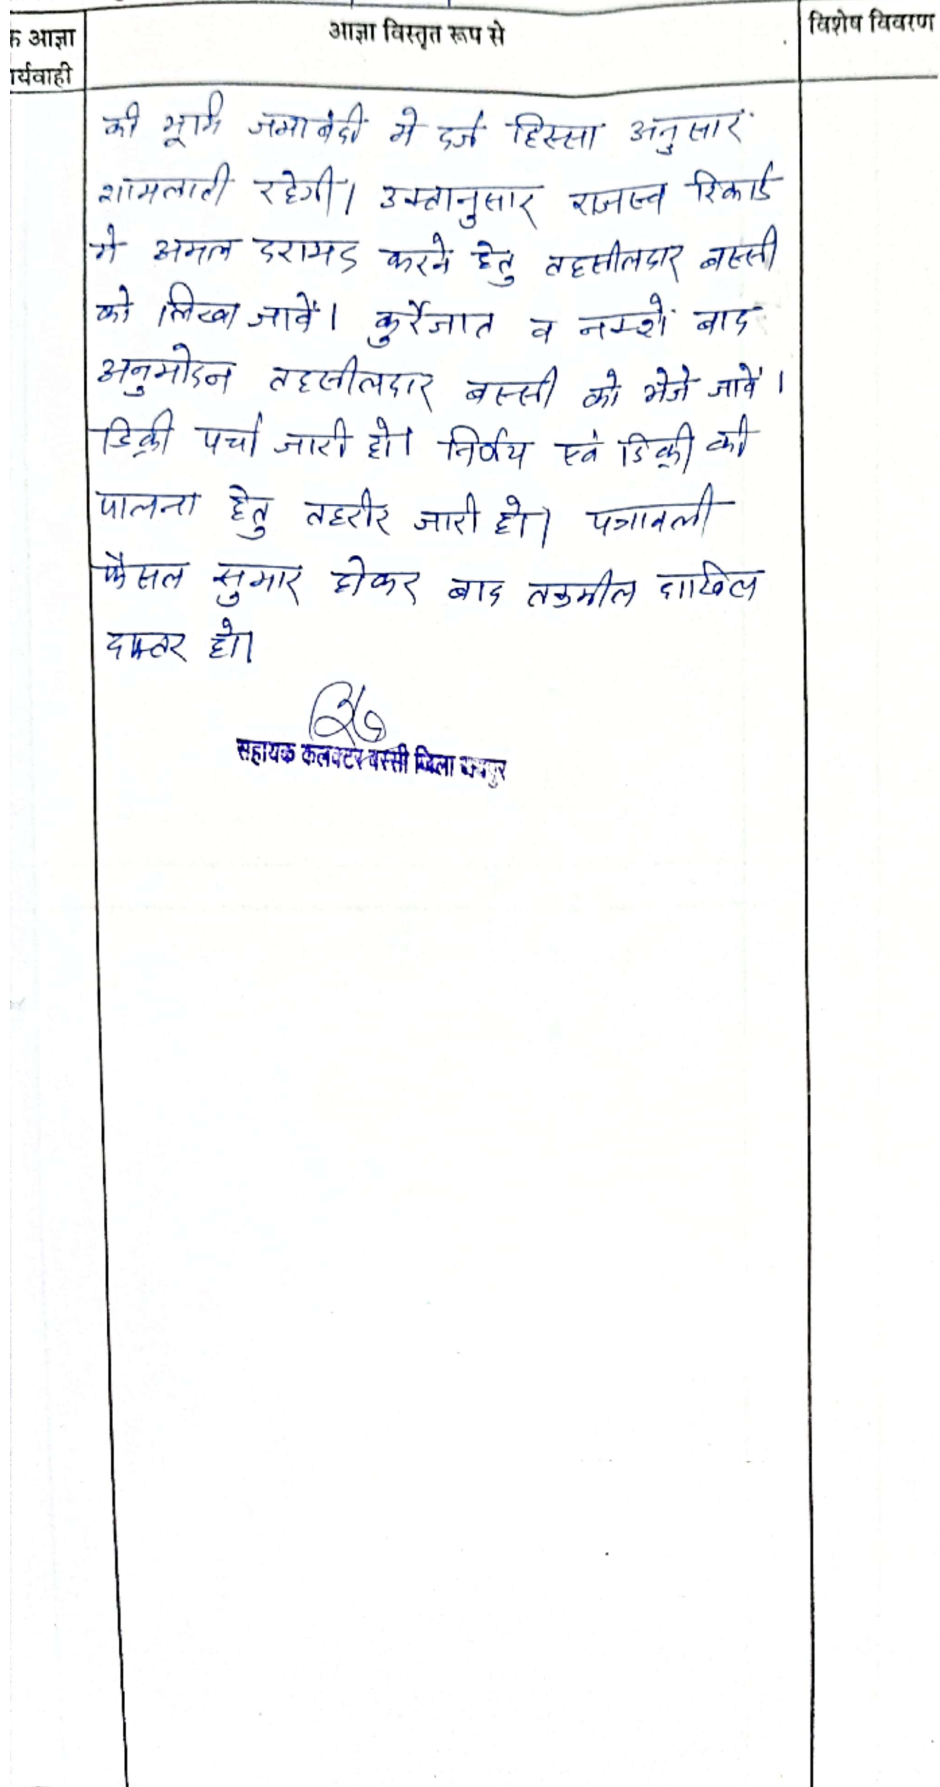 क आज्ञा
र्यवाही
आज्ञा विस्तृत रूप से
विशेष विवरण
की भूमि जमाबंदी मे दर्ज हिस्सा अनुसार
शामलाती रहेगी। उक्तानुसार राजस्व रिकार्ड
मे अमल दरामद करने हेतु तहसीलदार बस्सी
को लिखा जावें। कुर्रेजात व नक्शे बाद
अनुमोदन तहसीलदार बस्सी को भेजे जावें।
डिक्री पर्चा जारी हो। निर्णय एवं डिक्री की
पालना हेतु तहरीर जारी हो। पत्रावली
फैसल सुमार होकर बाद तकमील दाखिल
दफ्तर हो।
सहायक कलक्टर बस्सी जिला जयपुर